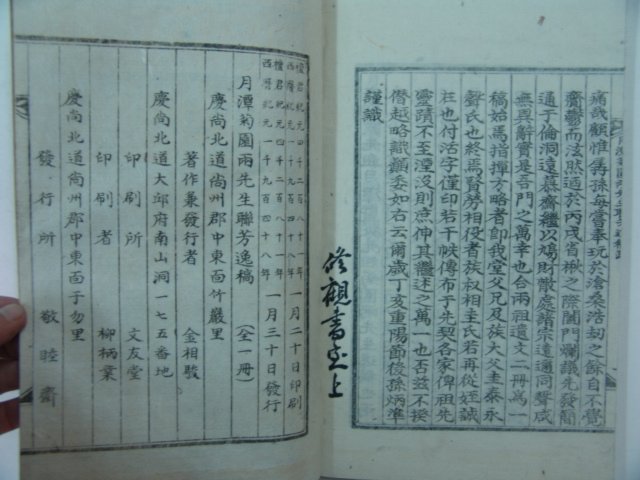 痛哉顧惟孱孫每當奉玩於滄桑浩刼之餘自不覺
齎鬱而泫然適於丙戌省楸之際闔門爛議先發簡
通于倫洞這泰齋繼以鳩財敵處諸宗遠邇同聲咸
無異辭實是吾門之萬幸也台兩祖遺文二冊爲一
稿始焉指揮方略者卽我室父兄及族大父圭泰永
聲氏也終焉賢勞相役者族叔相圭氏若再從姪誠
在也付活字僅印若干帙傳布于先契各家俾祖先
靈蹟不至湮沒則庶伸其繼述之萬一也否玆不揆
僭越略識顚委如右云爾歲丁亥重陽節後孫炳準
謹識
修觀書室上
檀君紀元四千二百八十一年
西曆紀元一千九百四十八年
一月二十日印刷
檀君紀元四千二百八十一年
西曆紀元一千九百四十八年
一月三十日發行
月潭菊園兩先生聯芳逸稿（全一冊）
慶尙北道尙州郡中東面竹巖里
著作兼發行者 金相駿
慶尙北道大邱府南山洞一七五番地
印刷所 文友堂
印刷者 柳柄業
慶尙北道尙州郡中東面于勿里
發行所 敬睦齋